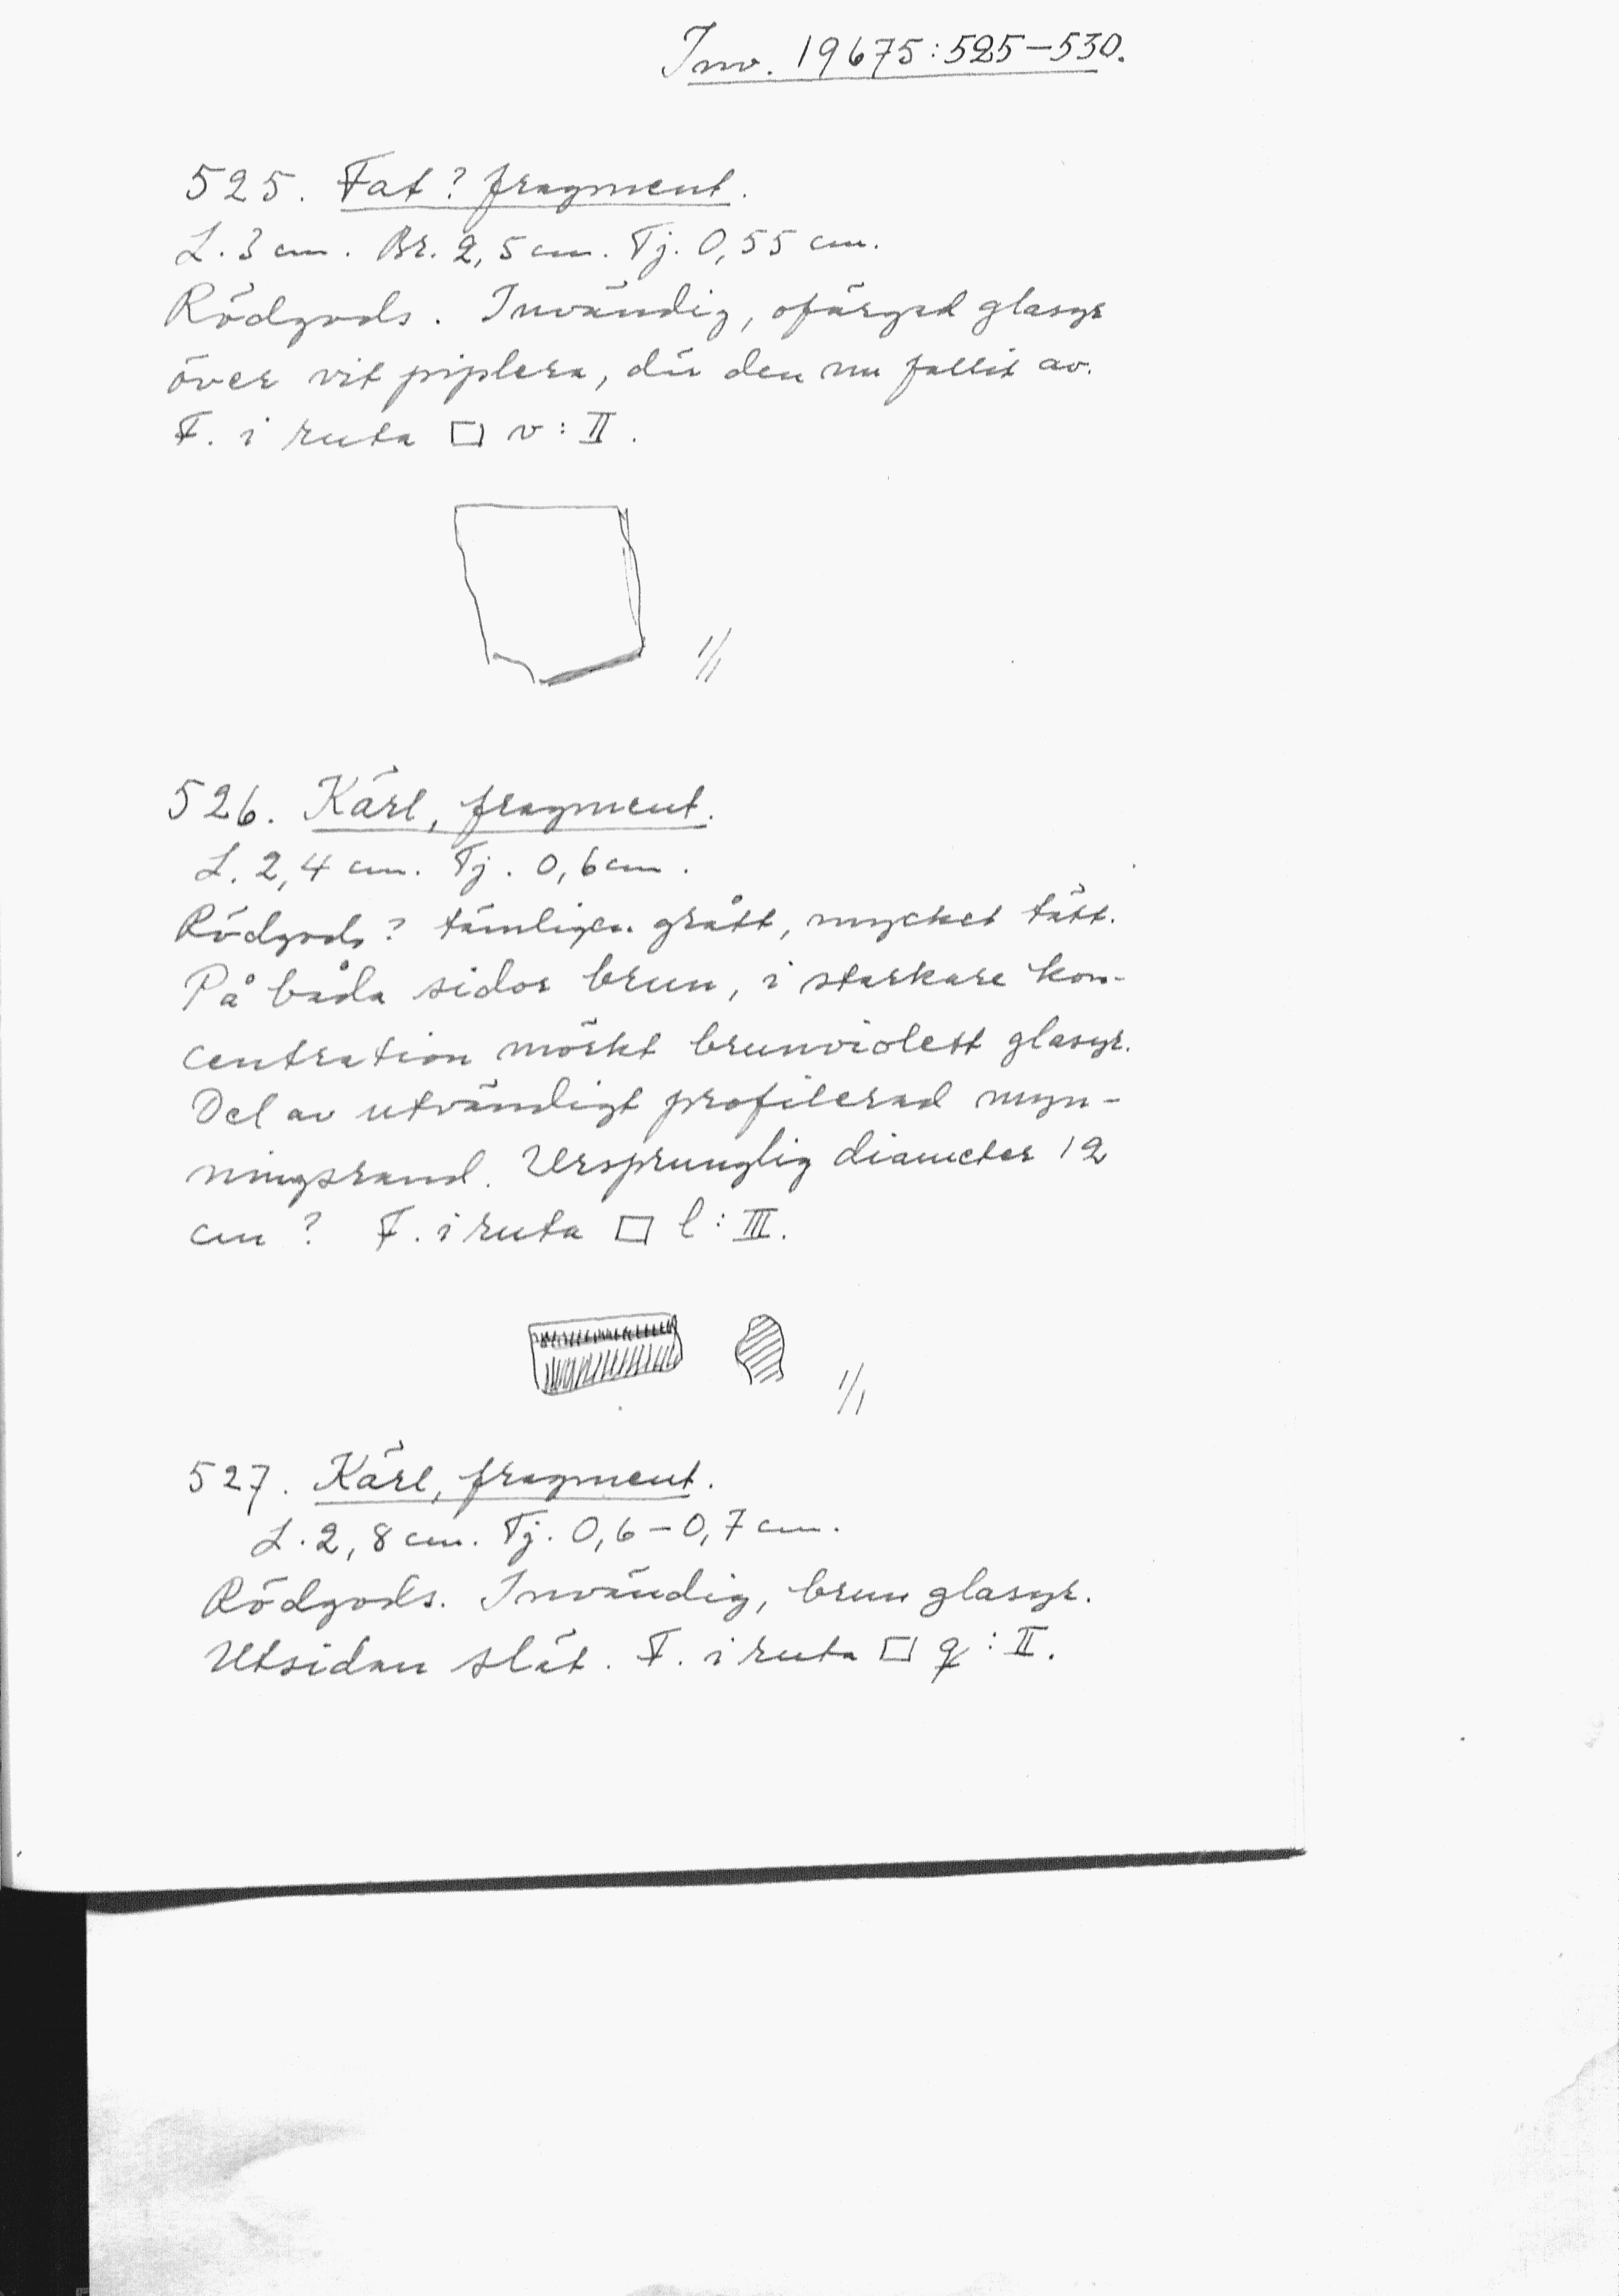 Inv. 19675:525–530.
525. Fat? fragment.
L. 3 cm. Br. 2,5 cm. Tj. 0,55 cm.
Rödgods. Invändig, ofärgad glasyr
över vit piplera, där den nu fallit av.
F. i ruta □ v:II.
1/1
526. Kärl, fragment.
L. 2,4 cm. Tj. 0,6 cm.
Rödgods? tämligen grått, mycket tätt.
På båda sidor brun, i starkare kon-
centration mörkt brunviolett glasyr.
Del av utvändigt profilerad myn-
ningsrand. Ursprunglig diameter 12
cm? F. i ruta □ l:III.
1/1
527. Kärl, fragment.
L. 2,8 cm. Tj. 0,6–0,7 cm.
Rödgods. Invändig, brun glasyr.
Utsidan slät. F. i ruta □ q:II.